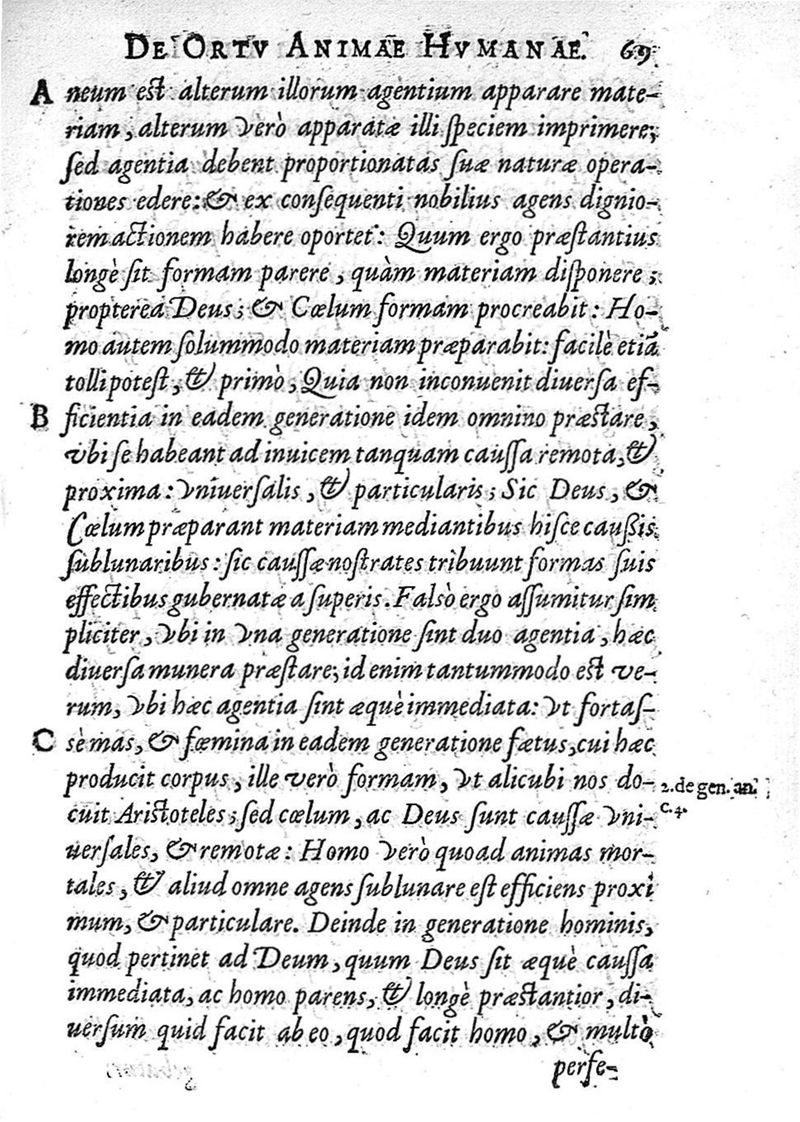 DE ORTV ANIMAE HVMANAE. 69
A neum est alterum illorum agentium apparare mate-
riam, alterum verò apparatæ illi speciem imprimere;
sed agentia debent proportionatas suæ naturæ opera-
tiones edere: & ex consequenti nobilius agens dignio-
rem actionem habere oportet: Quum ergo præstantius
longè sit formam parere, quàm materiam disponere;
proptereà Deus; & Cœlum formam procreabit: Ho-
mo autem solummodo materiam præparabit: facilè etiã
tolli potest, & primò, Quia non inconuenit diuersa ef-
B ficientia in eadem generatione idem omnino præstare,
vbi se habeant ad inuicem tanquam caussa remota, &
proxima: vniuersalis, & particularis; Sic Deus, &
Cœlum præparant materiam mediantibus hisce caußis
sublunaribus: sic caussæ nostrates tribuunt formas suis
effectibus gubernatæ a superis. Falsò ergo assumitur sim
pliciter, vbi in vna generatione sint duo agentia, hæc
diuersa munera præstare; id enim tantummodo est ve-
rum, vbi hæc agentia sint æquè immediata: vt fortas-
C sè mas, & fœmina in eadem generatione fætus, cui hæc
producit corpus, ille verò formam, vt alicubi nos do-
2. de gen. an.
cuit Aristoteles; sed cœlum, ac Deus sunt caussæ vni-
c. 4.
uersales, & remotæ: Homo verò quoad animas mor-
tales, & aliud omne agens sublunare est efficiens proxi
mum, & particulare. Deinde in generatione hominis,
quod pertinet ad Deum, quum Deus sit æquè caussa
immediata, ac homo parens, & longè præstantior, di-
uersum quid facit ab eo, quod facit homo, & multò
perfe-